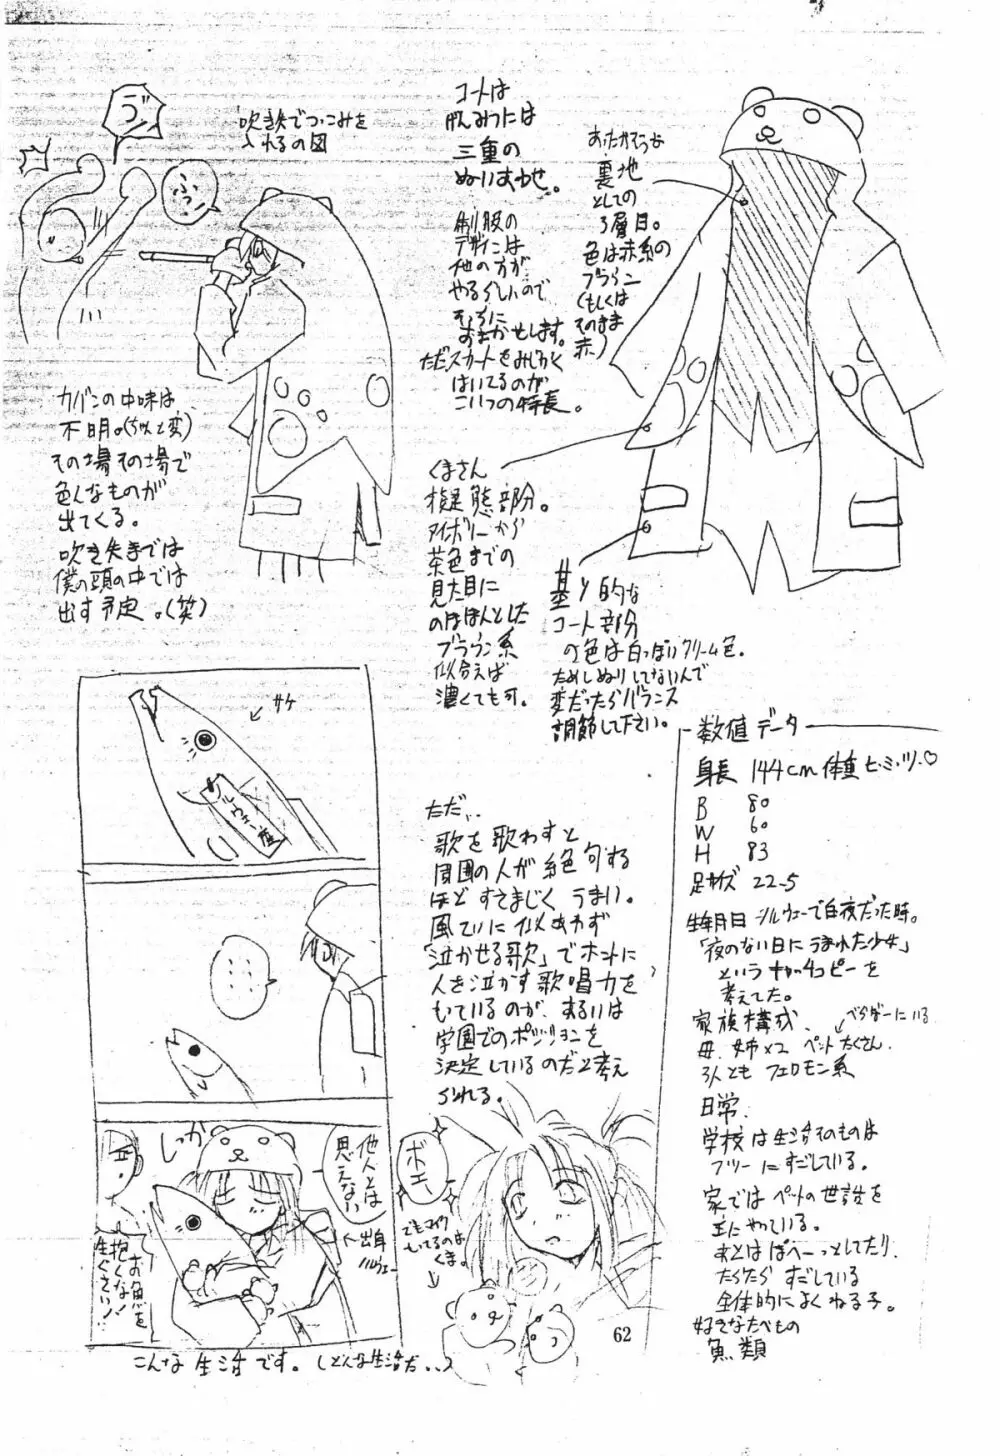 コートは
げんみつには
三重の
ぬいあわせ。
制服の
デザインは
他の方が
やるらしいので
そちらに
おまかせします。
ただスカートをみじかく
はいてるのが
こいつの特長。
あったかそうな
裏地
としての
3層目。
色は赤系の
ブラウン
(もしくは
そのまま
赤)
吹き矢でつっこみを
入れるの図
ふっ
カバンの中味は
不明。(ちょいと変)
その場その場で
色んなものが
出てくる。
吹き矢までは
僕の頭の中では
出す予定。(笑)
くまさん
擬態部分。
アイボリーから
茶色までの
見た目に
のほほんとした
ブラウン系
似合えば
濃くても可。
基本的な
コート部分
の色は白っぽいクリーム色。
ためしぬりしてないんで
変だったらバランス
調節して下さい。
サケ
ノルウェー産
しっか
他人とは
思えない
出身
ノルウェー
お魚を
抱くな!
生ぐさい!
こんな生活です。(どんな生活だ..)
ただ..
歌を歌わすと
周囲の人が絶句する
ほどすさまじくうまい。
風ていに似あわず
「泣かせる歌」でホントに
人を泣かす歌唱力を
もっているのが、あるいは
学園でのポジションを
決定しているのだと考え
られる。
ボエー
でもマイク
もってるのは
くま。
数値データ
身長 144cm 体重 ヒ・ミ・ツ♡
B 80
W 60
H 83
足サイズ 22.5
生年月日 ノルウェーで白夜だった時。
「夜のない日にうまれた少女」
というキャッチコピーを
考えてた。
家族構成
母、姉×2 ペットたくさん
べらぼーにいる
3人とも フェロモン系
日常
学校は生活そのものは
フリーにすごしている。
家ではペットの世話を
主にやっている。
あとはぽへーっとしてたり、
だらだらすごしている
全体的によくねる子。
好きなたべもの
魚類
62